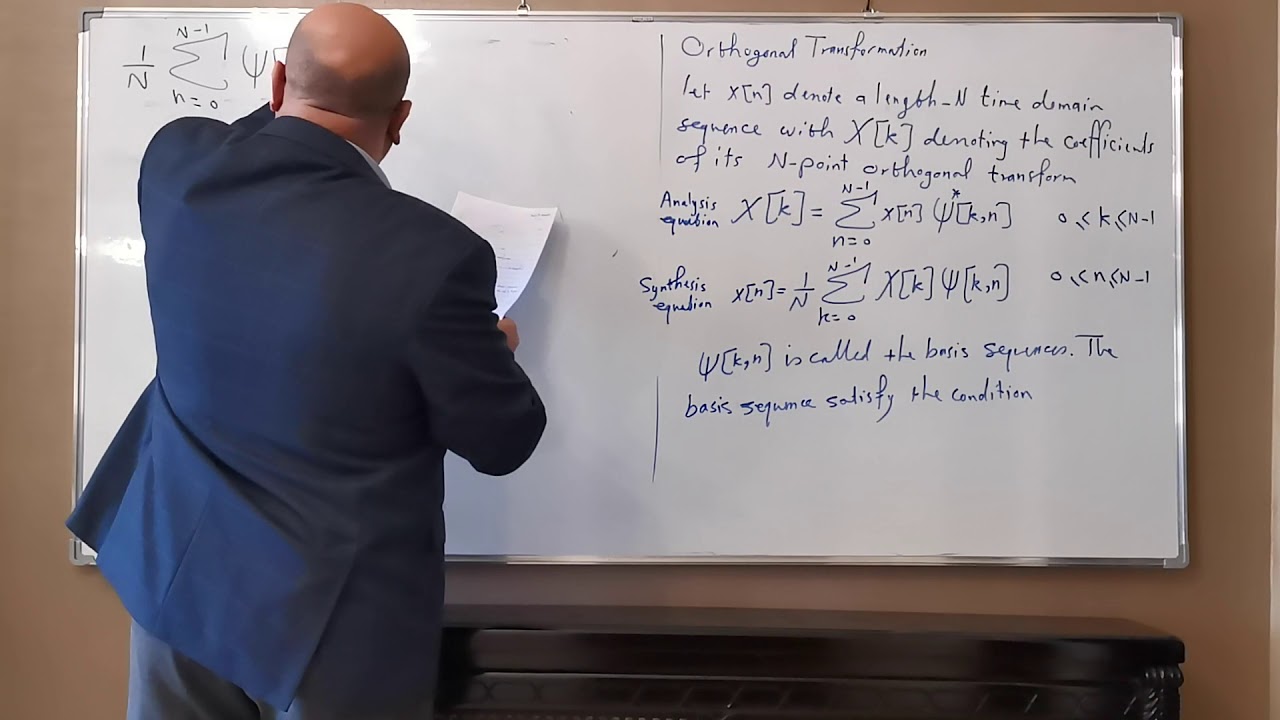 N-1
1/N ∑ ψ[
n=0
Orthogonal Transformation
let x[n] denote a length-N time domain
sequence with X[k] denoting the coefficients
of its N-point orthogonal transform
Analysis equation X[k] = ∑_{n=0}^{N-1} x[n] ψ*[k,n] 0 ≤ k ≤ N-1
Synthesis equation x[n] = 1/N ∑_{k=0}^{N-1} X[k] ψ[k,n] 0 ≤ n ≤ N-1
ψ[k,n] is called the basis sequences. The
basis sequence satisfy the condition